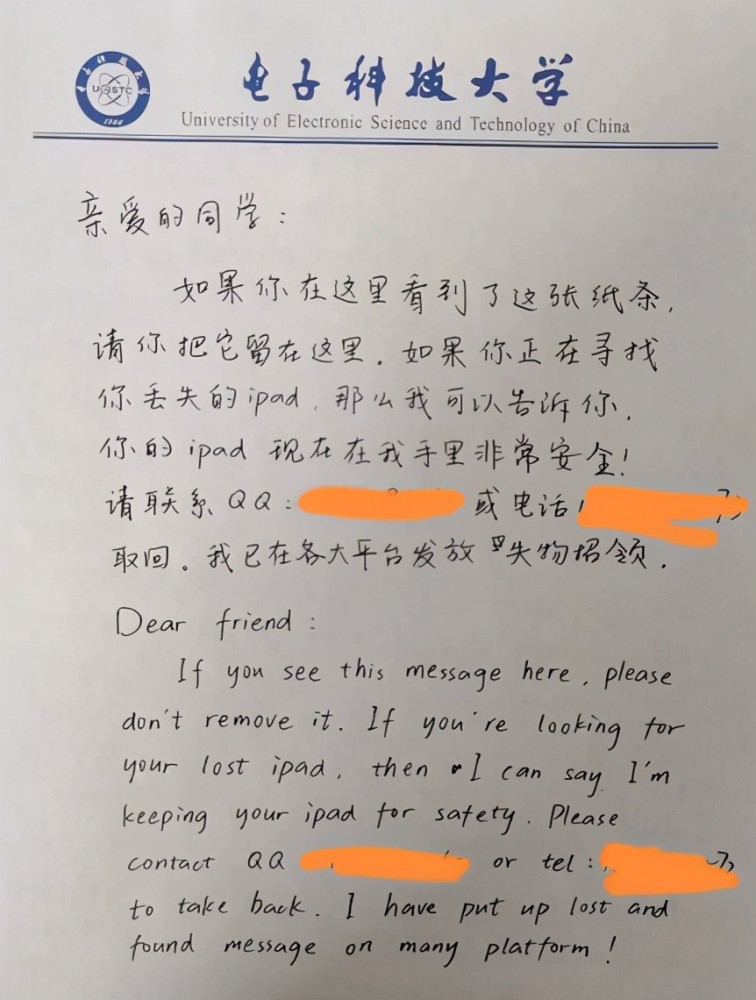 电子科技大学
University of Electronic Science and Technology of China
UESTC
1956
亲爱的同学：
如果你在这里看到了这张纸条，
请你把它留在这里．如果你正在寻找
你丢失的ipad，那么我可以告诉你，
你的ipad 现在在我手里非常安全！
请联系QQ： 或电话：
取回。我已在各大平台发放 失物招领．
Dear friend :
If you see this message here, please
don't remove it. If you're looking for
your lost ipad, then I can say I'm
keeping your ipad for safety. Please
contact QQ or tel :
to take back. I have put up lost and
found message on many platform !